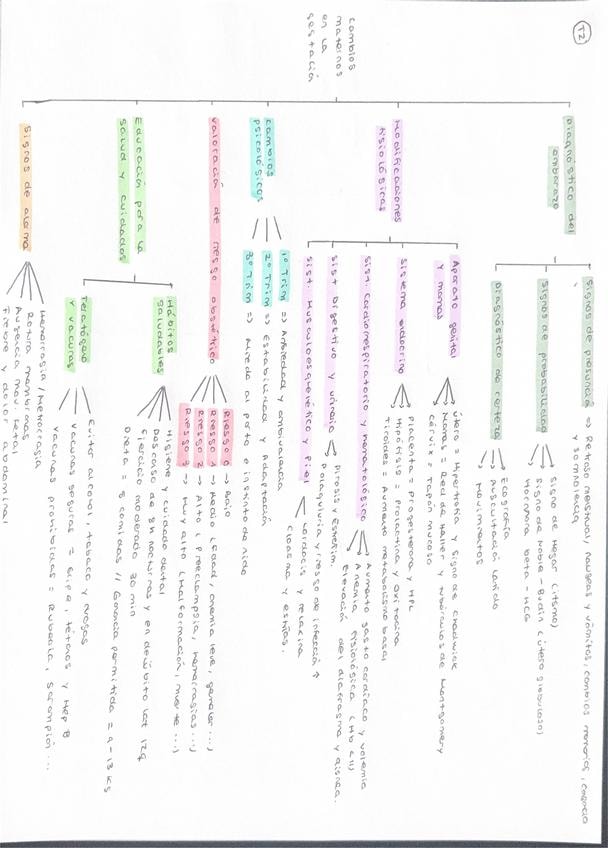 T2
Cambios
maternos
en la
gestación
Diagnóstico del
embarazo
Signos de presunción => Retraso menstrual, nauseas y vómitos, cambios mamarios, cansancio
y somnolencia
Signos de probabilidad
Signo de Hegar (itsmo)
Signo de Noble - Budin (útero globuloso)
Hormona beta - HCG
Diagnóstico de certeza
Ecografía
Auscultación latido
Movimientos
Modificaciones
fisiológicas
Aparato genital
y mamas
Útero = Hipertrofia y signo de chadwick
Mamas = Red de Haller y tubérculos de Montgomery
Cérvix = Tapón mucoso
Sistema endocrino
Placenta = Progesterona y HPL
Hipófisis = Prolactina y oxitocina
Tiroides = Aumento metabolismo basal
Sist. Cardiorrespiratorio y hematológico
Aumento gasto cardiaco y volemia
Anemia fisiológica (Hb < 11)
Elevación del diafragma y disnea.
Sist Digestivo y urinario
Pirosis y Estreñim.
Polaquiuria y riesgo de infección ↑
Sist. Musculoesquelético y Piel
Lordosis y relaxina
Cloasma y estrías.
Cambios
psicológicos
1º Trim => Ansiedad y ambivalencia
2º Trim => Estabilidad y Adaptación
3º Trim => Miedo al parto e instinto de nido
Valoración de riesgo obstétrico
Riesgo 0 -> Bajo
Riesgo 1 -> Medio (Edad, anemia leve, gemelar...)
Riesgo 2 -> Alto (Preeclampsia, Hemorragias...)
Riesgo 3 -> Muy alto (Malformación, muerte...)
Educación para la
salud y cuidados
Hábitos
saludables
Higiene y cuidado dental
Descanso de 8h nocturnas y en decúbito lat izq
Ejercicio moderado 30 min
Dieta = 5 comidas // Ganancia permitida = 9 - 13 KG
Teratógeno
y vacunas
Evitar alcohol, tabaco y drogas
Vacunas seguras = Gripe, tétanos y Hep B
Vacunas prohibidas = Rubeola, sarampión...
Signos de alarma
Hemorragia
Rotura membranas
Ausencia mov. fetal
Fiebre y dolor abdominal